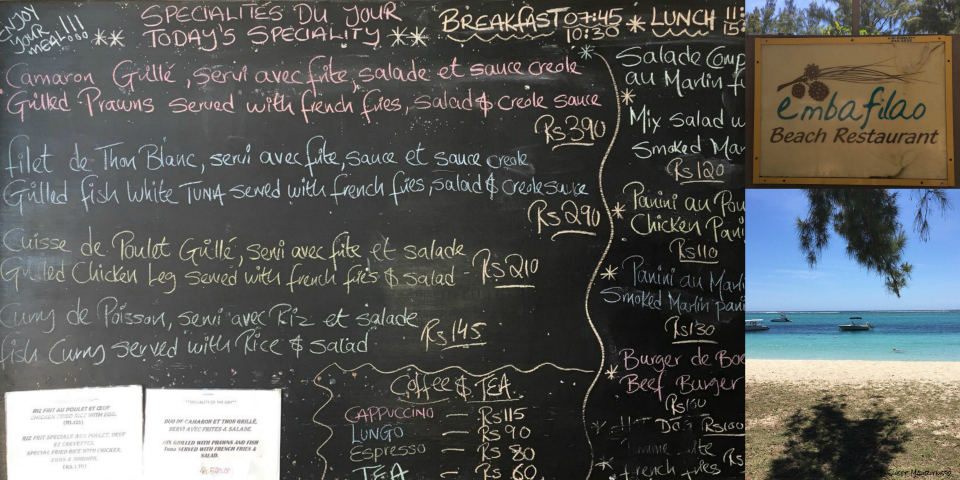 ENJOY
YOUR
MEAL!!!
SPECIALITES DU JOUR
** TODAY'S SPECIALITY **
Camaron Grillé, servi avec frite, salade et sauce creole
Grilled Prawns served with french fries, salad & Creole sauce
Rs390
filet de Thon Blanc, servi avec frite, sauce et sauce creole
Grilled fish White TUNA served with french fries, salad & creole sauce
Rs290
Cuisse de Poulot Grillé, servi avec frite, et salade
Grilled Chicken Leg served with french fries & salad - Rs210
Curry de Poisson, servi avec Riz et salade
fish Curry served with Rice & salad
Rs145
BREAKFAST 07:45
10:30
* LUNCH
* Salade Comp
au Marlin f
* Mix salad w
Smoked Mar
Rs120
* Panini au Pou
Chicken Pani
Rs110
* Panini au Marl
Smoked Marlin pani
Rs130
* Burger de Boe
Beef Burger
Rs150
Hot Dog Rs100
french fries Rs
Coffee & TEA
CAPPUCCINO — Rs115
LUNGO — Rs90
Espresso — Rs 80
TEA — Rs 60
RIZ FRIT AU POULET ET ŒUF
CHICKEN FRIED RICE WITH EGG.
RIZ FRIT SPECIALE AUX POULET, OEUF
ET CREVETTES.
SPECIAL FRIED RICE WITH CHICKEN,
EGGS & SHRIMP.
**SPECIALITY OF THE DAY**
DUO DE CAMARON ET THON GRILLÉ,
SERVI AVEC FRITES & SALADE.
MIX GRILLED WITH PRAWNS AND FISH
Tuna SERVED WITH FRENCH FRIES &
SALAD.
embafilao
Beach Restaurant